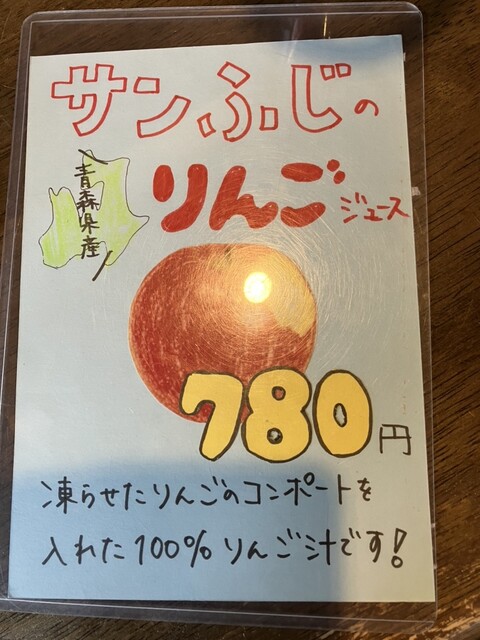 サンふじの
青森県産
りんごジュース
780円
凍らせたりんごのコンポートを
入れた100%りんご汁です!